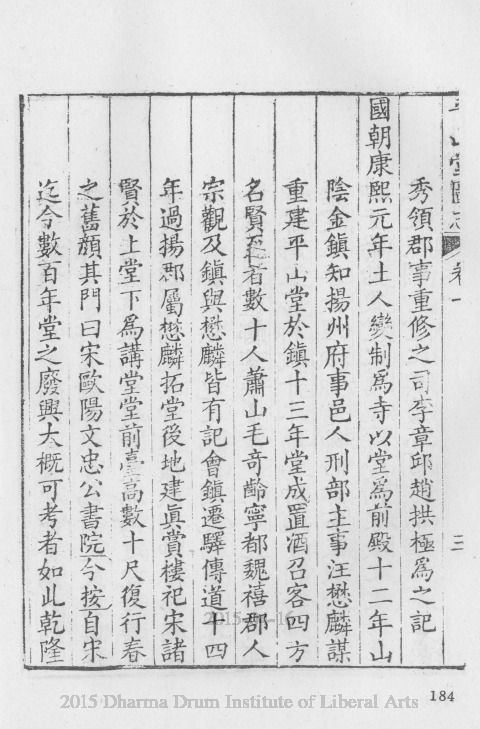 平山堂圖志 卷一 三
秀領郡事重修之司李章邱趙拱極為之記
國朝康熙元年土人變制為寺以堂為前殿十二年山
陰金鎮知揚州府事邑人刑部主事汪懋麟謀
重建平山堂於鎮十三年堂成置酒召客四方
名賢至者數十人蕭山毛奇齡寧都魏禧郡人
宗觀及鎮與懋麟皆有記會鎮遷驛傳道十四
年過揚郡屬懋麟拓堂後地建真賞樓祀宋諸
賢於上堂下為講堂堂前臺高數十尺復行春
之舊顏其門曰宋歐陽文忠公書院今按自宋
迄今數百年堂之廢興大概可考者如此乾隆
184
2015 Dharma Drum Institute of Liberal Arts